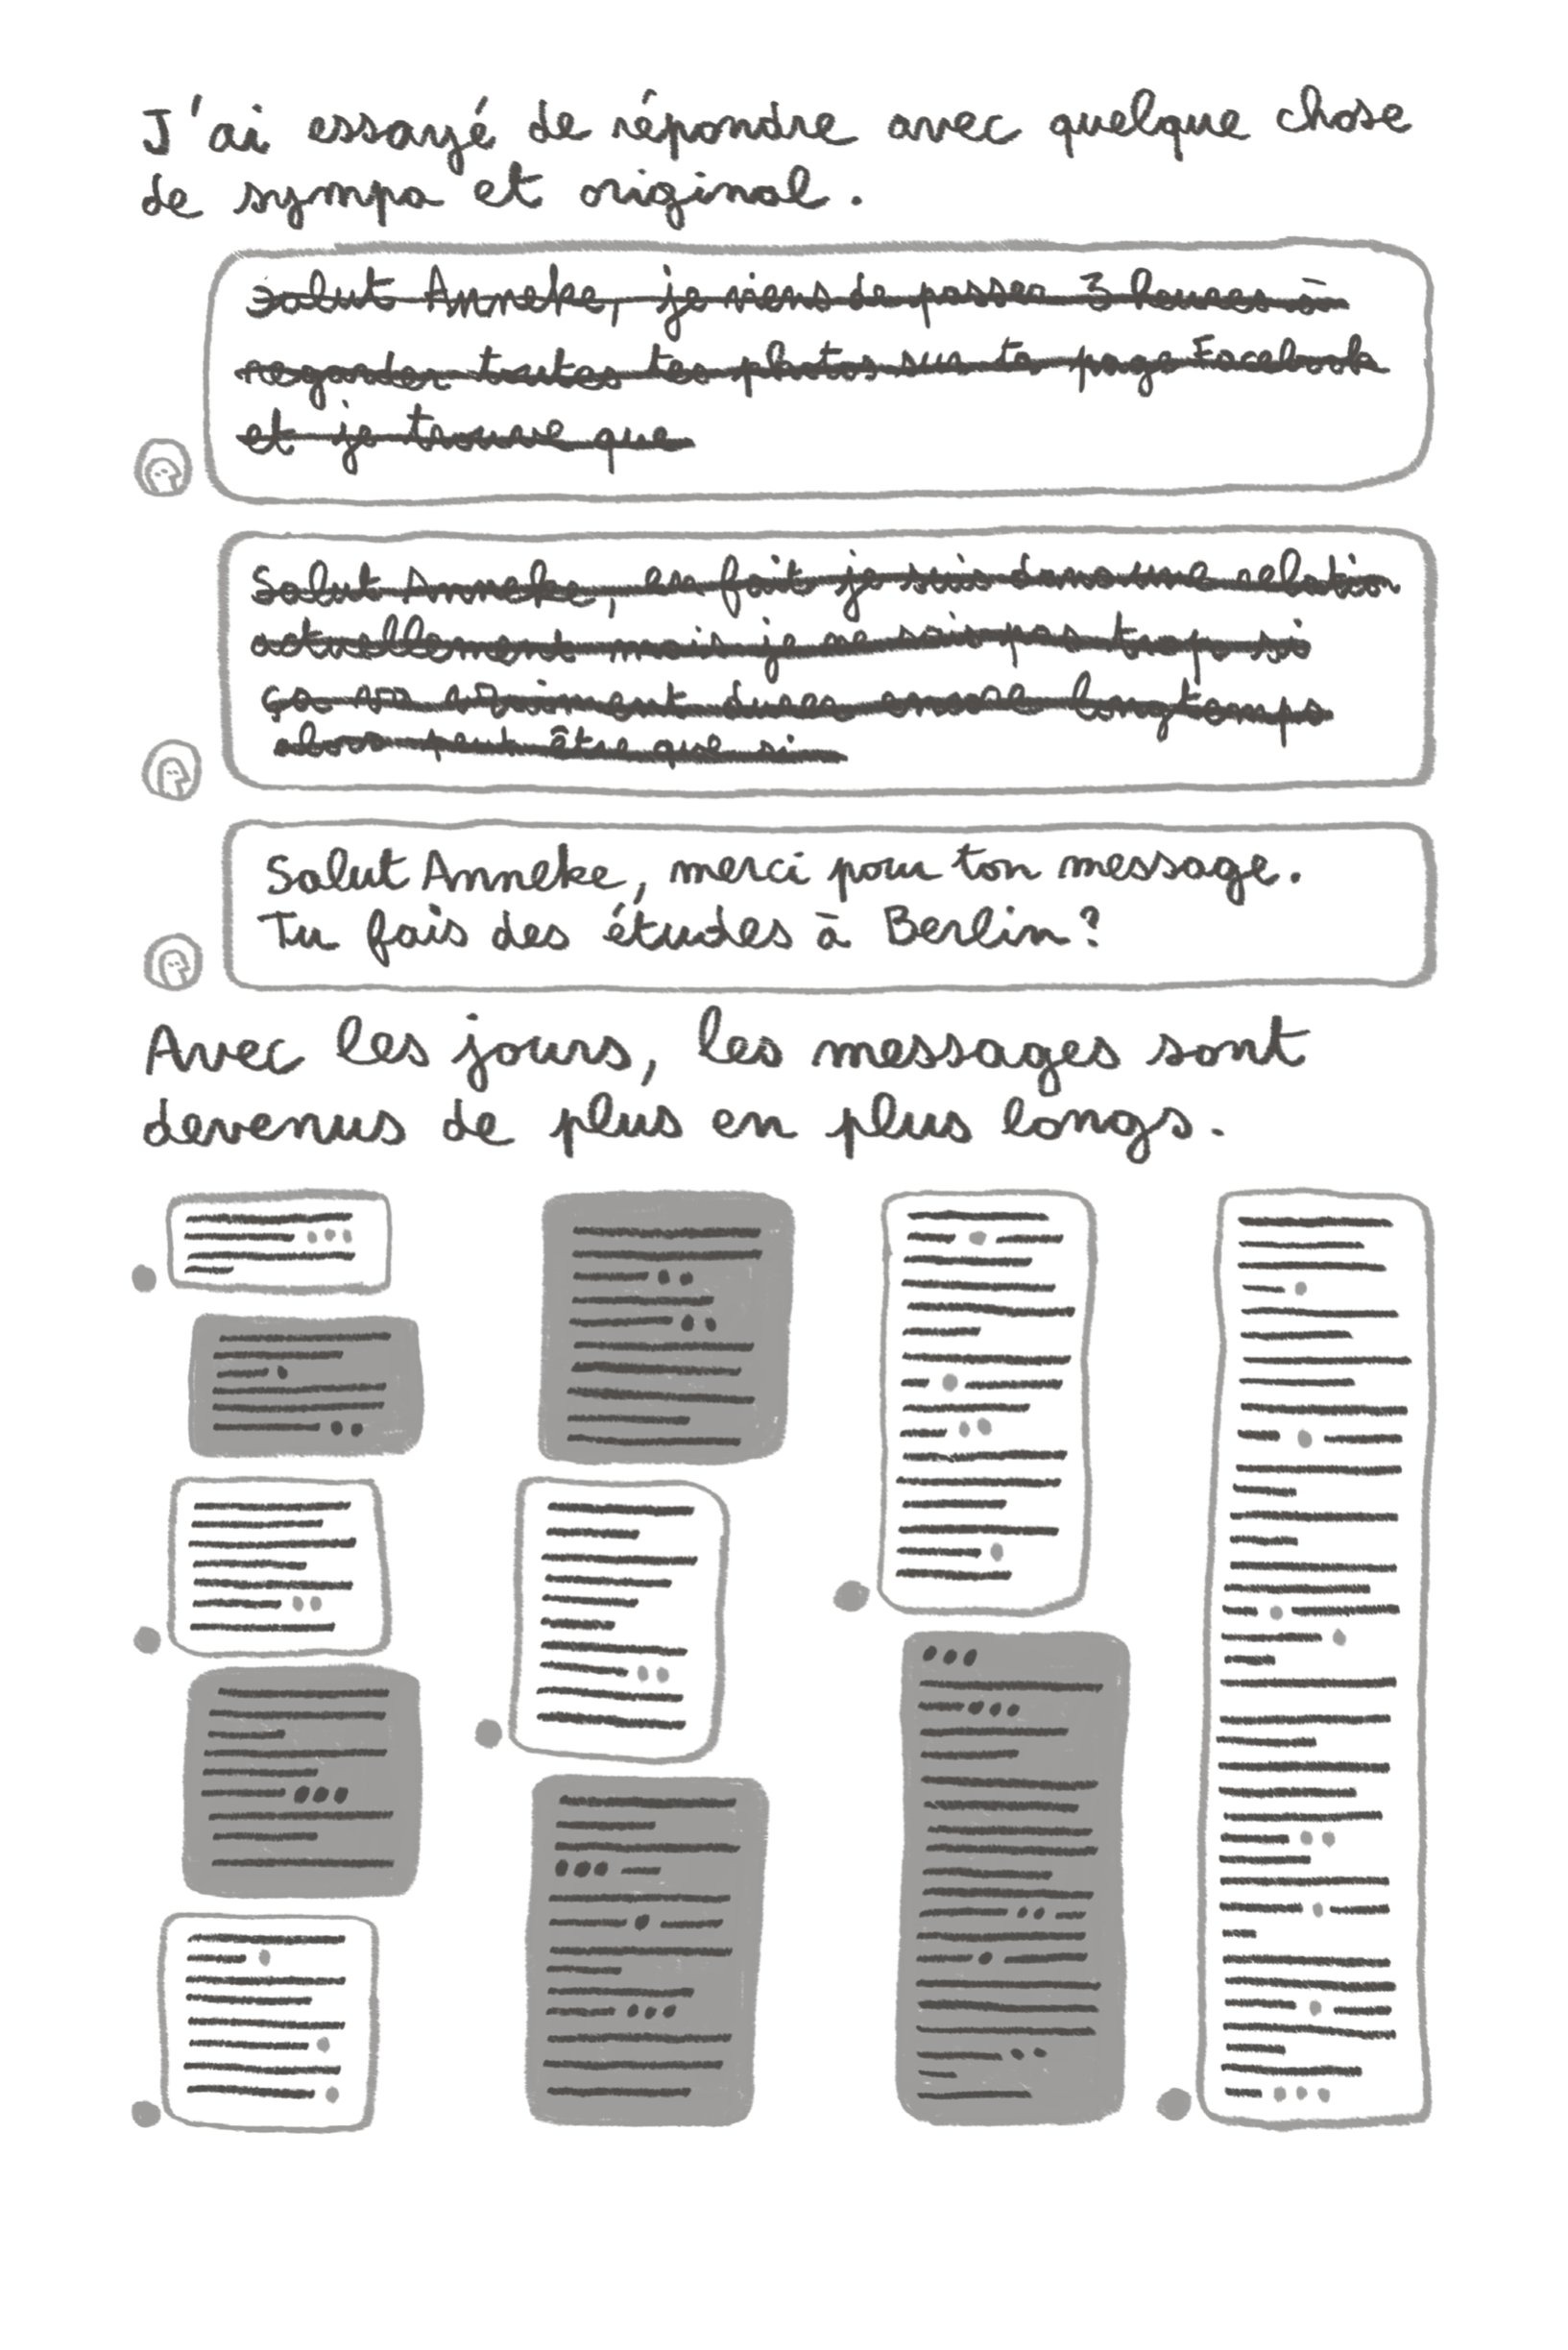 J'ai essayé de répondre avec quelque chose
de sympa et original.
Salut Anneke, je viens de passer 3 heures à
regarder toutes tes photos sur ta page Facebook
et je trouve que
Salut Anneke, en fait je suis dans une relation
actuellement mais je ne sais pas trop si
ça va vraiment durer encore longtemps
alors peut être que si
Salut Anneke, merci pour ton message.
Tu fais des études à Berlin?
Avec les jours, les messages sont
devenus de plus en plus longs.